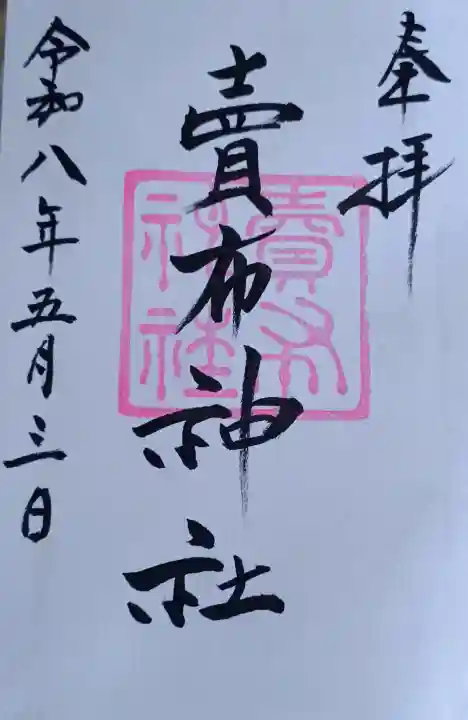 奉拝
賣布神社
賣布
神社
令和八年五月三日